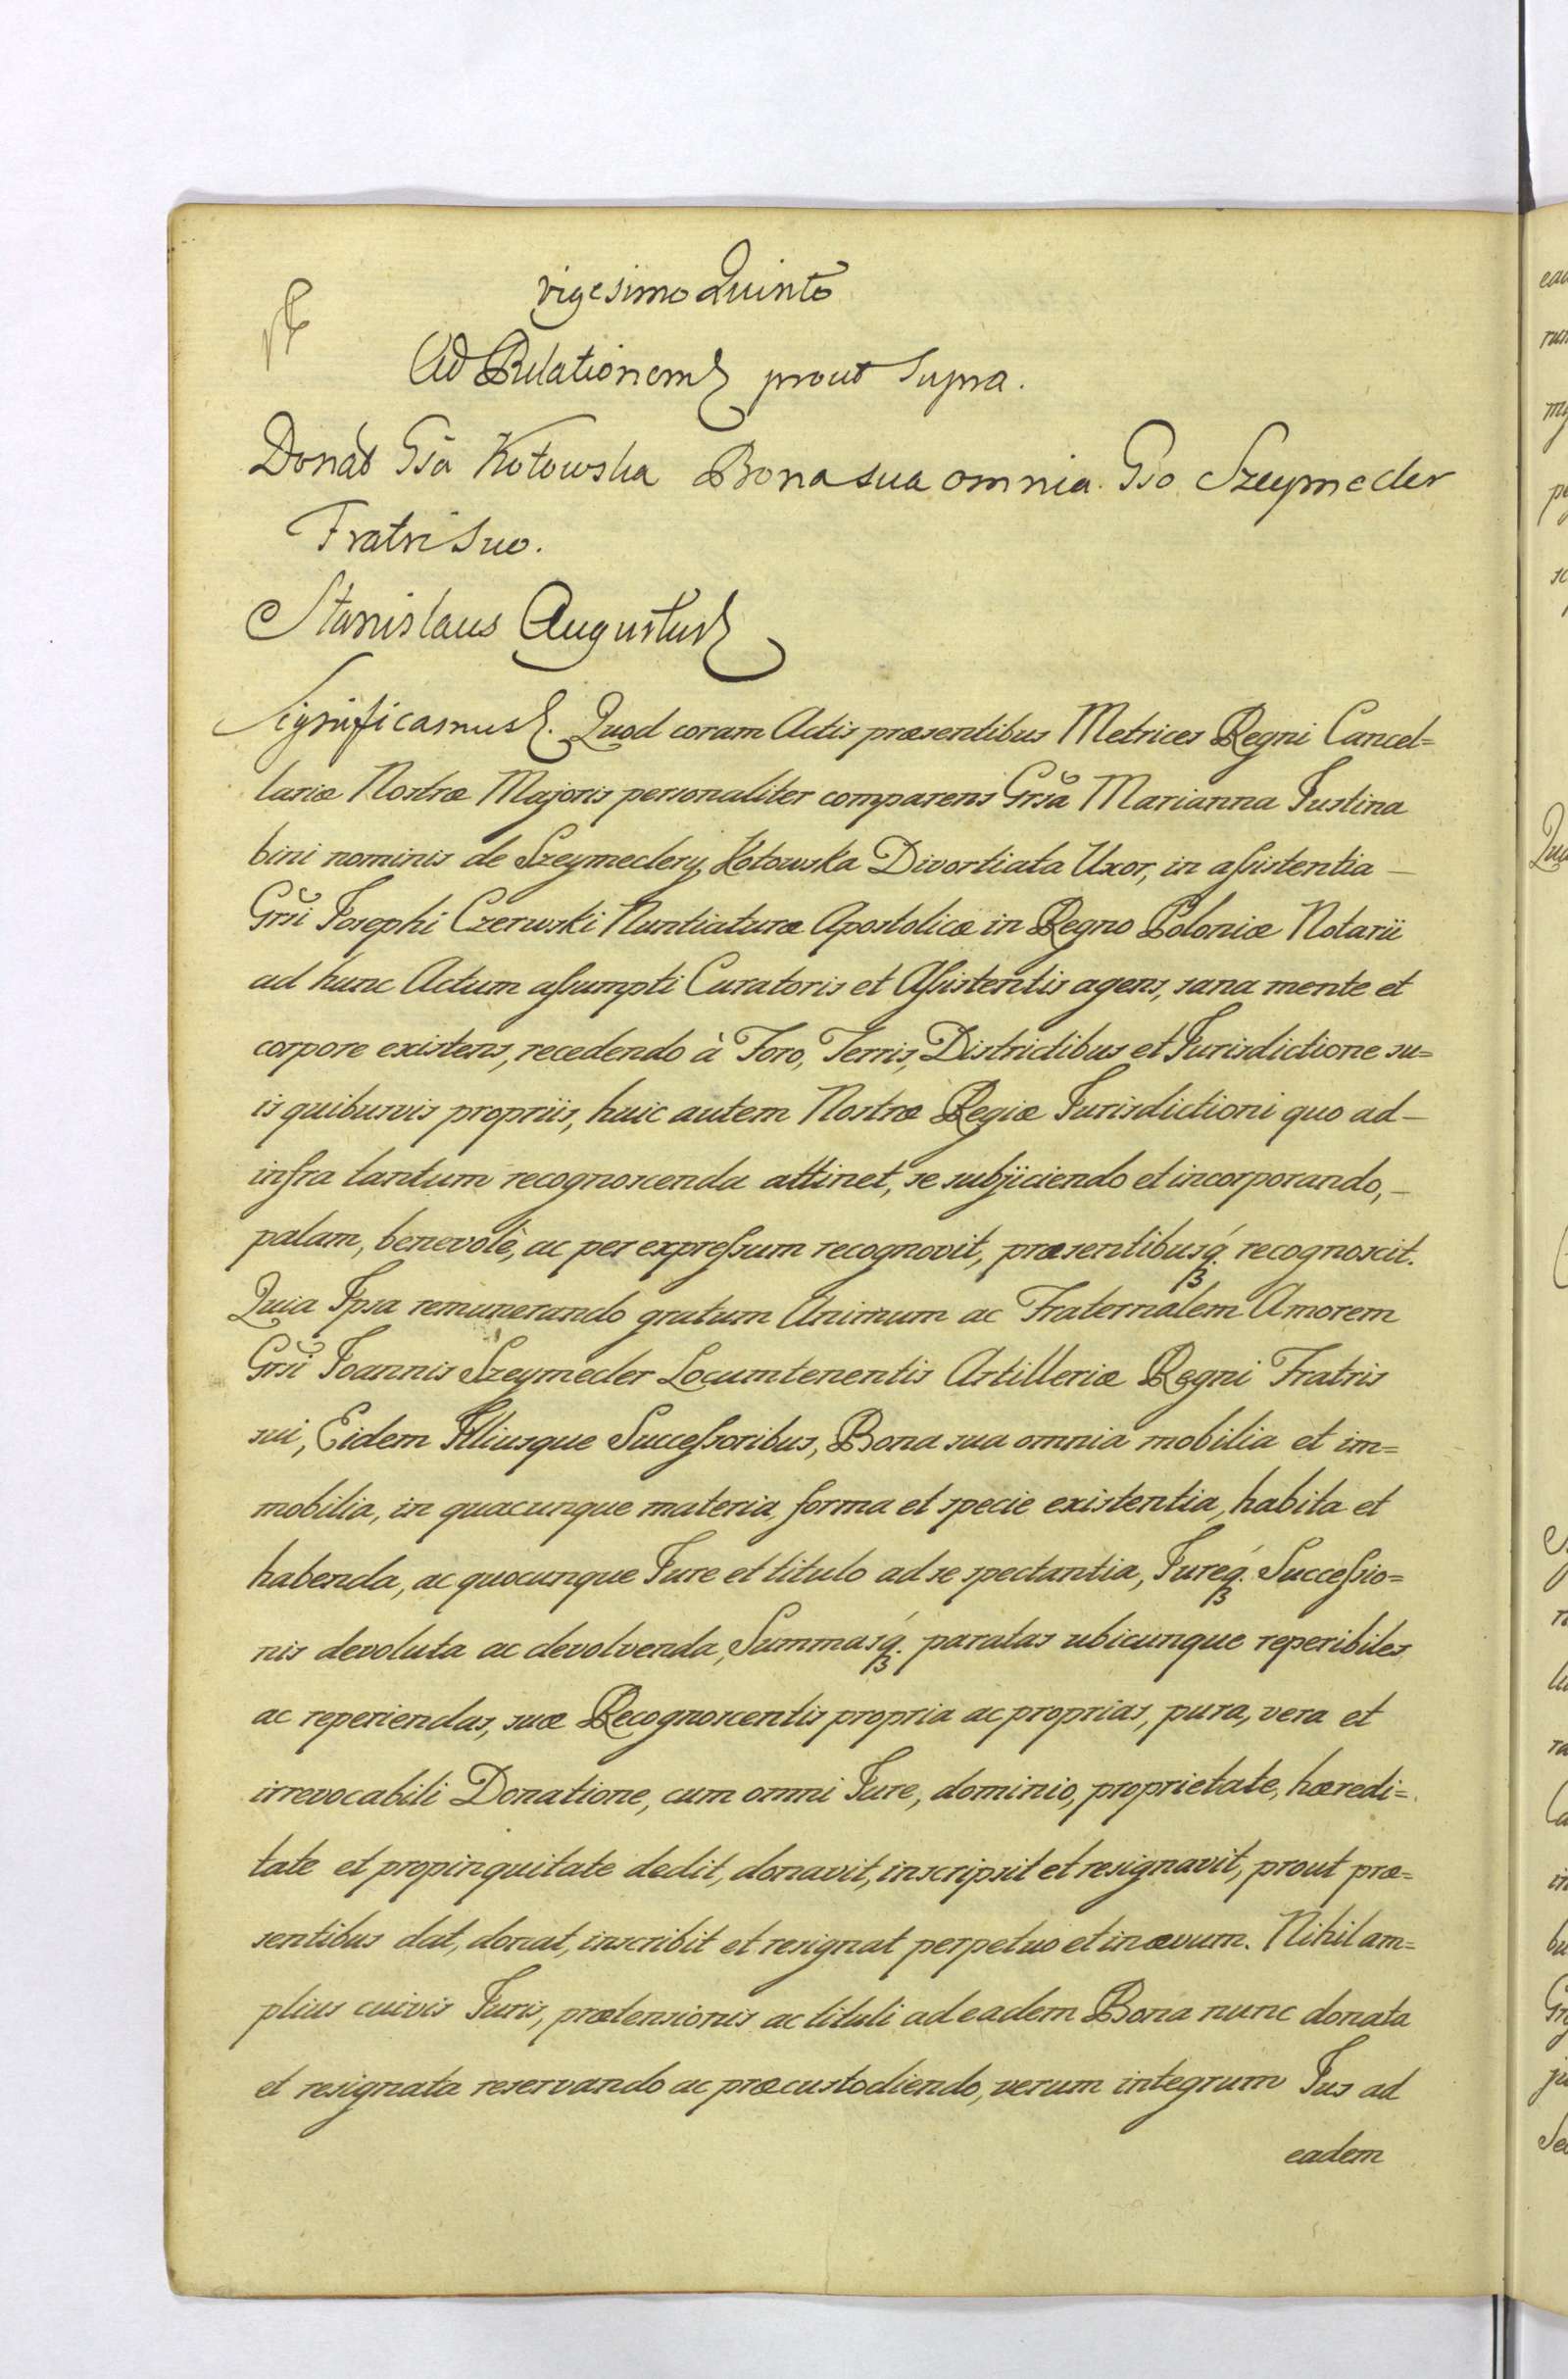 vigesimo Quinto
Ad Relationem prout supra.
Donat Gsa Kotowska Bona sua omnia Gso Szeymeder
Fratri suo.
Stanislaus Augustus
Significamus. Quod coram Actis præsentibus Metrices Regni Cancel=
lariæ Nostræ Majoris personaliter comparens Grsa Marianna Justina
bini nominis de Szeymedery Kotowska Divortiata Uxor, in assistentia –
Grsi Josephi Czerwski Nuntiaturæ Apostolicæ in Regno Poloniæ Notarii
ad hunc Actum assumpti Curatoris et Assistentis agens, sana mente et
corpore existens, recedendo à Foro, Terris, Districtibus et Jurisdictione su=
is quibusvis propriis, huic autem Nostræ Regiæ Jurisdictioni quo ad –
infra tantum recognoscenda attinet, se subjiciendo et incorporando, –
palam, benevolè, ac per expressum recognovit, præsentibusq́. recognoscit.
Quia Ipsa remunerando gratum Animum ac Fraternalem Amorem
Grsi Joannis Szeymeder Locumtenentis Artilleriæ Regni Fratris
sui, Eidem Illiusque Successoribus, Bona sua omnia mobilia et im=
mobilia, in quacunque materia, forma et specie existentia, habita et
habenda, ac quocunque Jure et titulo ad se spectantia, Jureq́. Successio=
nis devoluta ac devolvenda, Summasq́. paratas ubicunque reperibiles
ac reperiendas, suæ Recognoscentis propria ac proprias, pura, vera et
irrevocabili Donatione, cum omni Jure, dominio, proprietate, hæredi=
tate et propinquitate dedit, donavit, inscripsit et resignavit, prout præ=
sentibus dat, donat, inscribit et resignat perpetuo et in ævum. Nihil am=
plius cuivis Juris, prætensionis ac tituli ad eadem Bona nunc donata
et resignata reservando ac præcustodiendo, verum integrum Jus ad
eadem